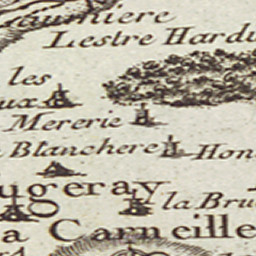 aumiere
Lestre Hardu
les
ux
Mererie
Blanchere Hon
ugeray la Bru
a Carneille